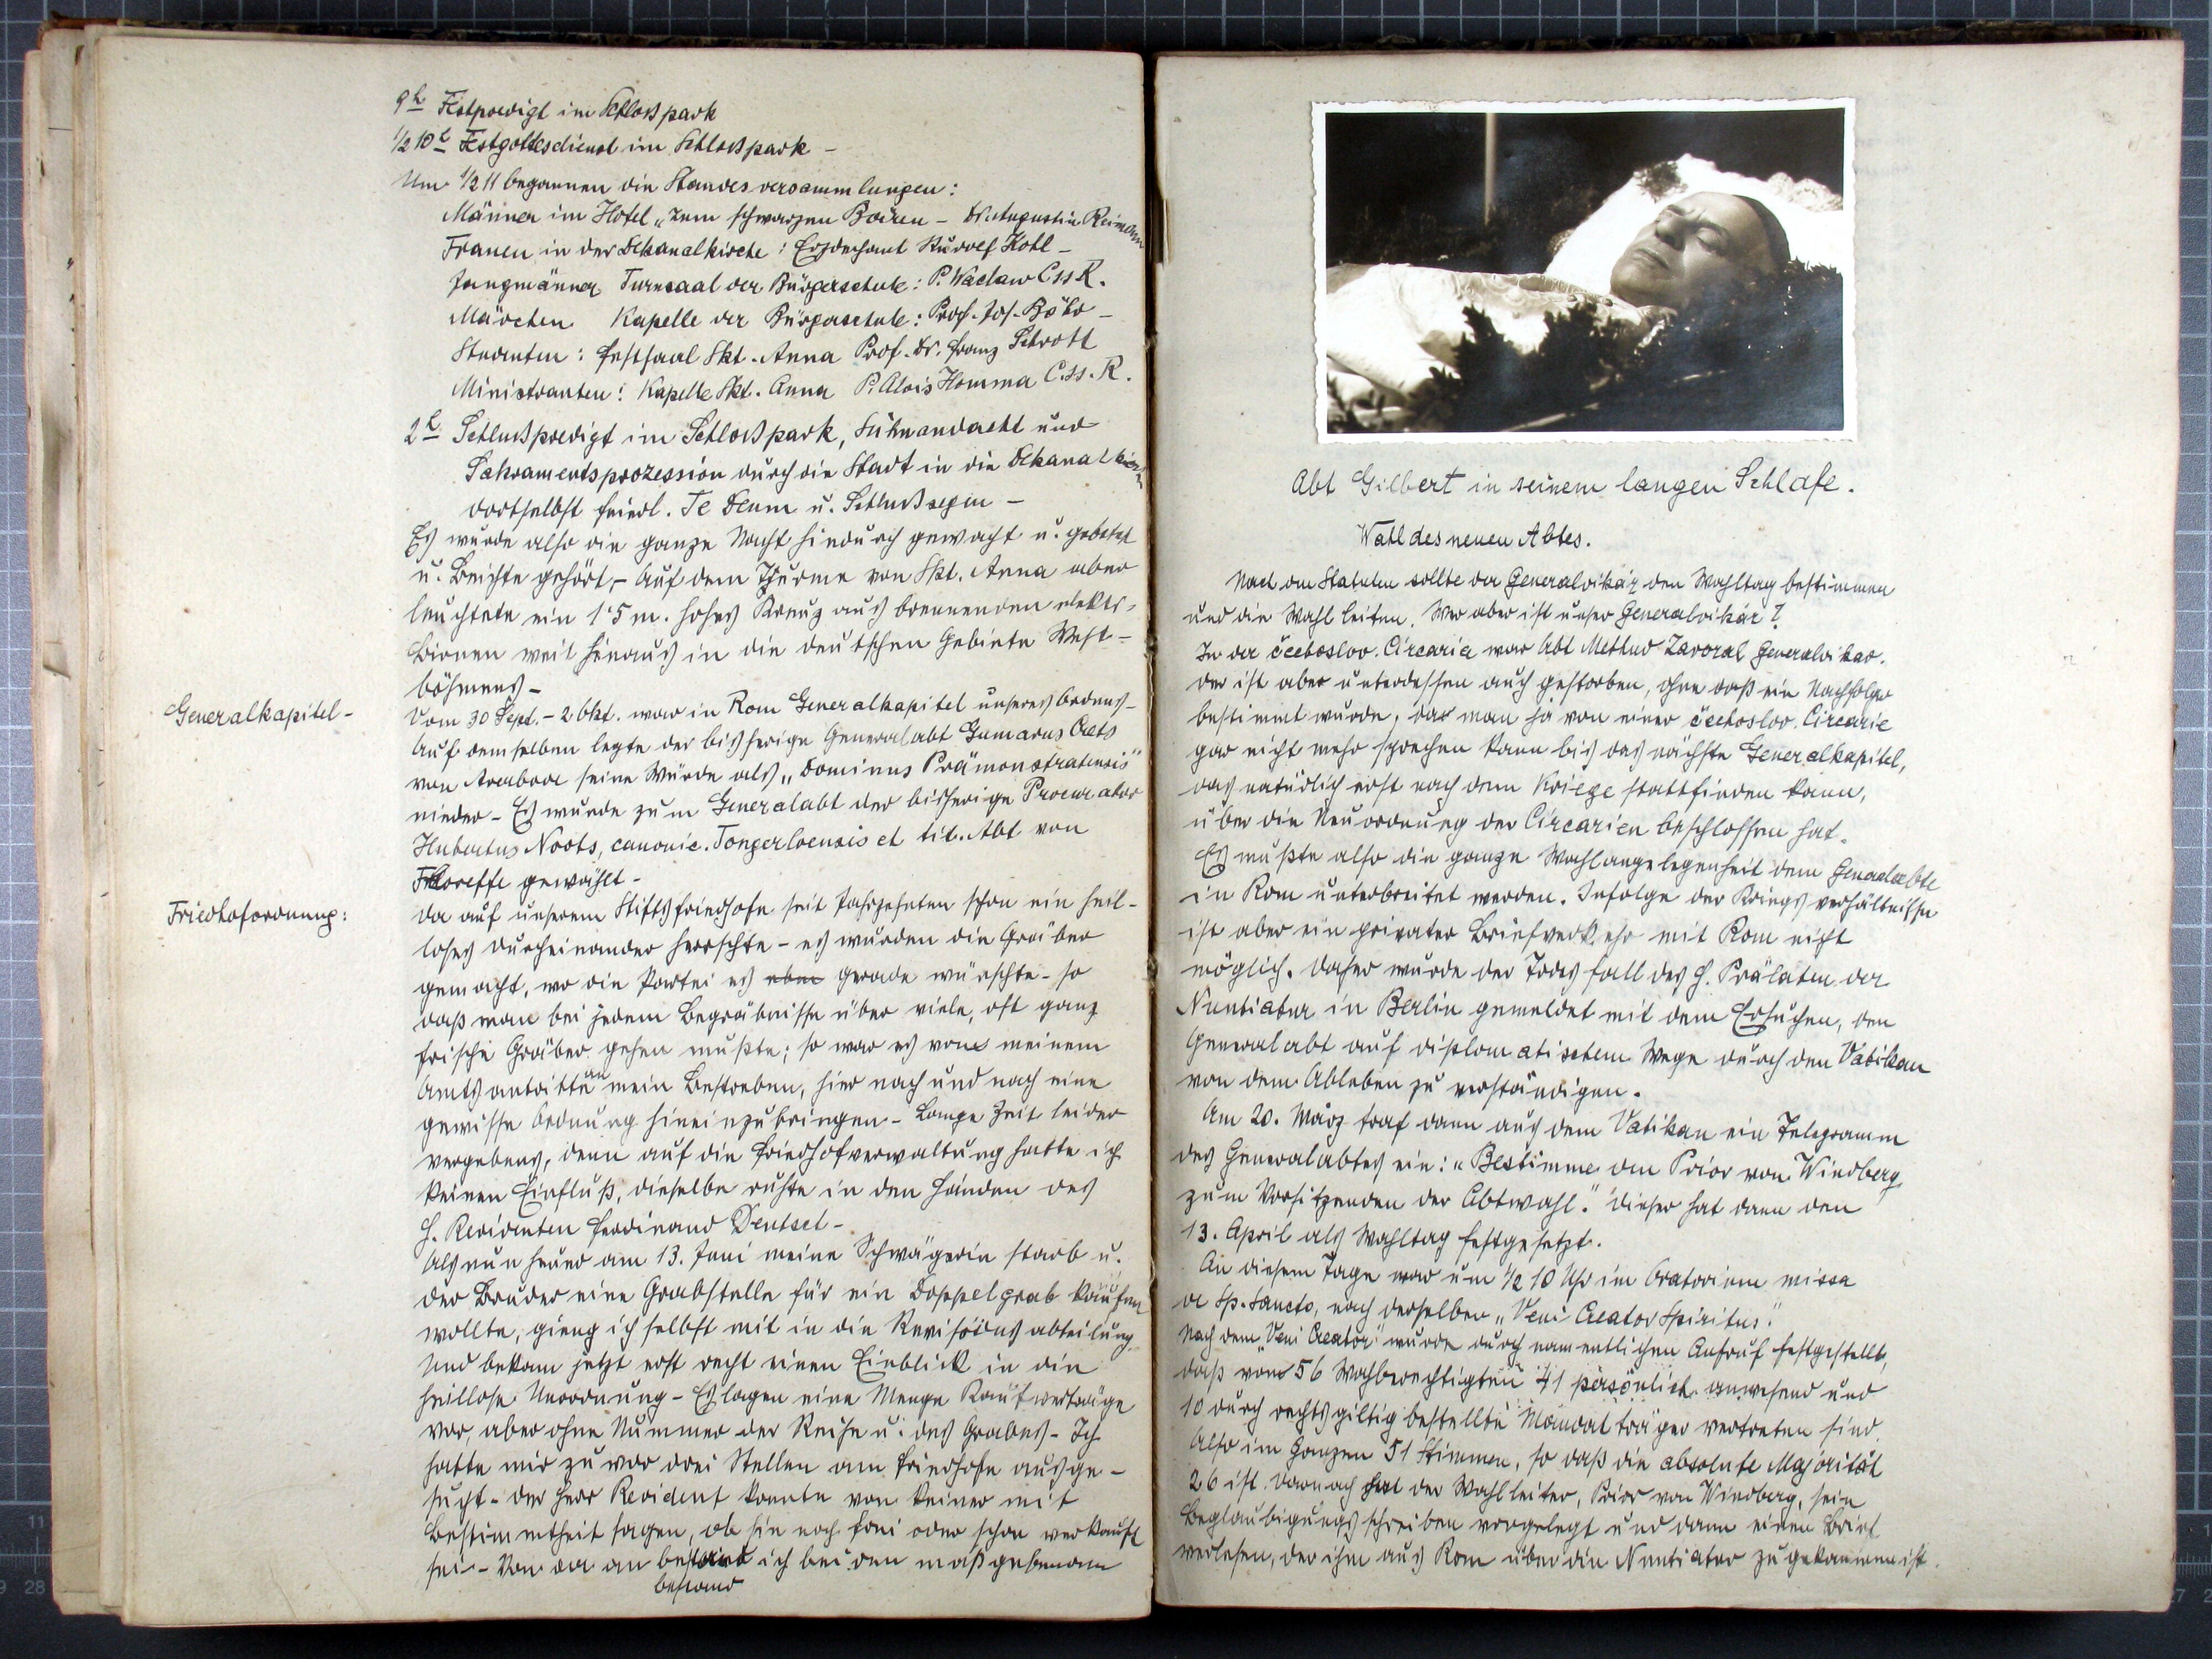 9h Festpredigt im Schloßpark
1/2 10h Festgottesdienst im Schloßpark -
Um 1/2 11 begannen die Standesversammlungen:
Männer im Hotel „zum schwarzen Bären - Dr. Augustin Reimann
Frauen in der Dekanalkirche: Erzdechant Rudolf Kohl -
Jungmänner Turnsaal der Bürgerschule: P. Waclaw CssR.
Mädchen Kapelle der Bürgerschule: Prof. Jos. Böhr -
Studenten: Festsaal Skt. Anna Prof. Dr. Franz Schrott
Ministranten: Kapelle Skt. Anna P. Alois Homma C.ss.R.
2h Schlußpredigt im Schloßpark, Sühnandacht und
Sakramentsprozession durch die Stadt in die Dekanalkirche
dortselbst feierl. Te Deum u. Schlußsegen -
Es wurde also die ganze Nacht hindurch gewacht u. gebetet
u. Beichte gehört. - Auf dem Thurme von Skt. Anna aber
leuchtete ein 1'5 m. hohes Kreuz aus brennenden elektr.
Birnen weit hinaus in die deutschen Gebiete West-
böhmens -
Generalkapitel -
Vom 30 Sept. - 2 Okt. war in Rom Generalkapitel unseres Ordens -
Auf demselben legte der bisherige Generalabt Gumarus Crets
von Averbode seine Würde als „Dominus Prämonstratensis"
nieder - Es wurde zum Generalabt der bisherige Procurator
Hubertus Noots, canonic. Tongerloensis et tit. Abt von
Floreffe gewählt -
Friedhofordnung:
Da auf unserem Stiftsfriedhofe seit Jahrzehnten schon ein heil-
loses durcheinander herrschte - es wurden die Gräber
gemacht, wo die Partei es eben gerade wünschte - so
daß man bei jedem Begräbnisse über viele, oft ganz
frische Gräber gehen mußte; so war es vom meinem
Amtsantritte an mein Bestreben, hier nach und nach eine
gewisse Ordnung hineinzubringen - Lange Zeit leider
vergebens, denn auf die Friedhofverwaltung hatte ich
keinen Einfluß, dieselbe ruhte in den Händen des
H. Revidenten Ferdinand Deutsch -
Als nun heuer am 13. Juni meine Schwägerin starb u.
der Bruder eine Grabstelle für ein Doppelgrab kaufen
wollte, gieng ich selbst mit in die Revisionsabteilung
und bekam jetzt erst recht einen Einblick in die
heillose Unordnung - Es lagen eine Menge Kaufverträge
vor, aber ohne Nummer der Reihe u. des Grabes - Ich
hatte mir zuvor drei Stellen am Friedhofe ausge-
sucht - der Herr Revident konnte von keiner mit
Bestimmtheit sagen, ob sie noch frei oder schon verkauft
sei - Von da an bestand ich bei den maßgebenden
bestand
Abt Gilbert in seinem langen Schlafe.
Wahl des neuen Abtes.
Nach den Statuten sollte der Generalvikär den Wahltag bestimmen
und die Wahl leiten. Wer aber ist unser Generalvikär?
In der čechoslov. Circaria war Abt Method Zavoral Generalvikar.
Der ist aber unterdessen auch gestorben, ohne daß ein Nachfolger
bestimmt wurde, da man ja von einer čechoslov. Circarie
gar nicht mehr sprechen kann bis das nächste Generalkapitel,
das natürlich erst nach dem Kriege stattfinden kann,
über die Neuordnung der Circarien beschlossen hat.
Es mußte also die ganze Wahlangelegenheit dem Generalabte
in Rom unterbreitet werden. Infolge der Kriegsverhältnisse
ist aber ein privater Briefverkehr mit Rom nicht
möglich. Daher wurde der Todesfall des H. Prälaten der
Nuntiatur in Berlin gemeldet mit dem Ersuchen, den
Generalabt auf diplomatischem Wege durch den Vatikan
von dem Ableben zu verständigen.
Am 20. März traf dann aus dem Vatikan ein Telegramm
des Generalabtes ein: „Bestimme den Prior von Windberg
zum Vorsitzenden der Abtwahl." Dieser hat dann den
13. April als Wahltag festgesetzt.
An diesem Tage war um 1/2 10 Uhr im Oratorium missa
de Sp. Sancto, nach derselben „Veni Creator Spiritus."
Nach dem „Veni Creator" wurde durch namentlichen Aufruf festgestellt,
daß von 56 Wahlberechtigten 41 persönlich anwesend und
10 durch rechtsgiltig bestellte Mandatträger vertreten sind.
Also im Ganzen 51 Stimmen, so daß die absolute Majorität
26 ist. Darnach hat der Wahlleiter, Prior von Windberg, sein
Beglaubigungsschreiben vorgelegt und dann einen Brief
verlesen, der ihm aus Rom über die Nuntiatur zugekommen ist.